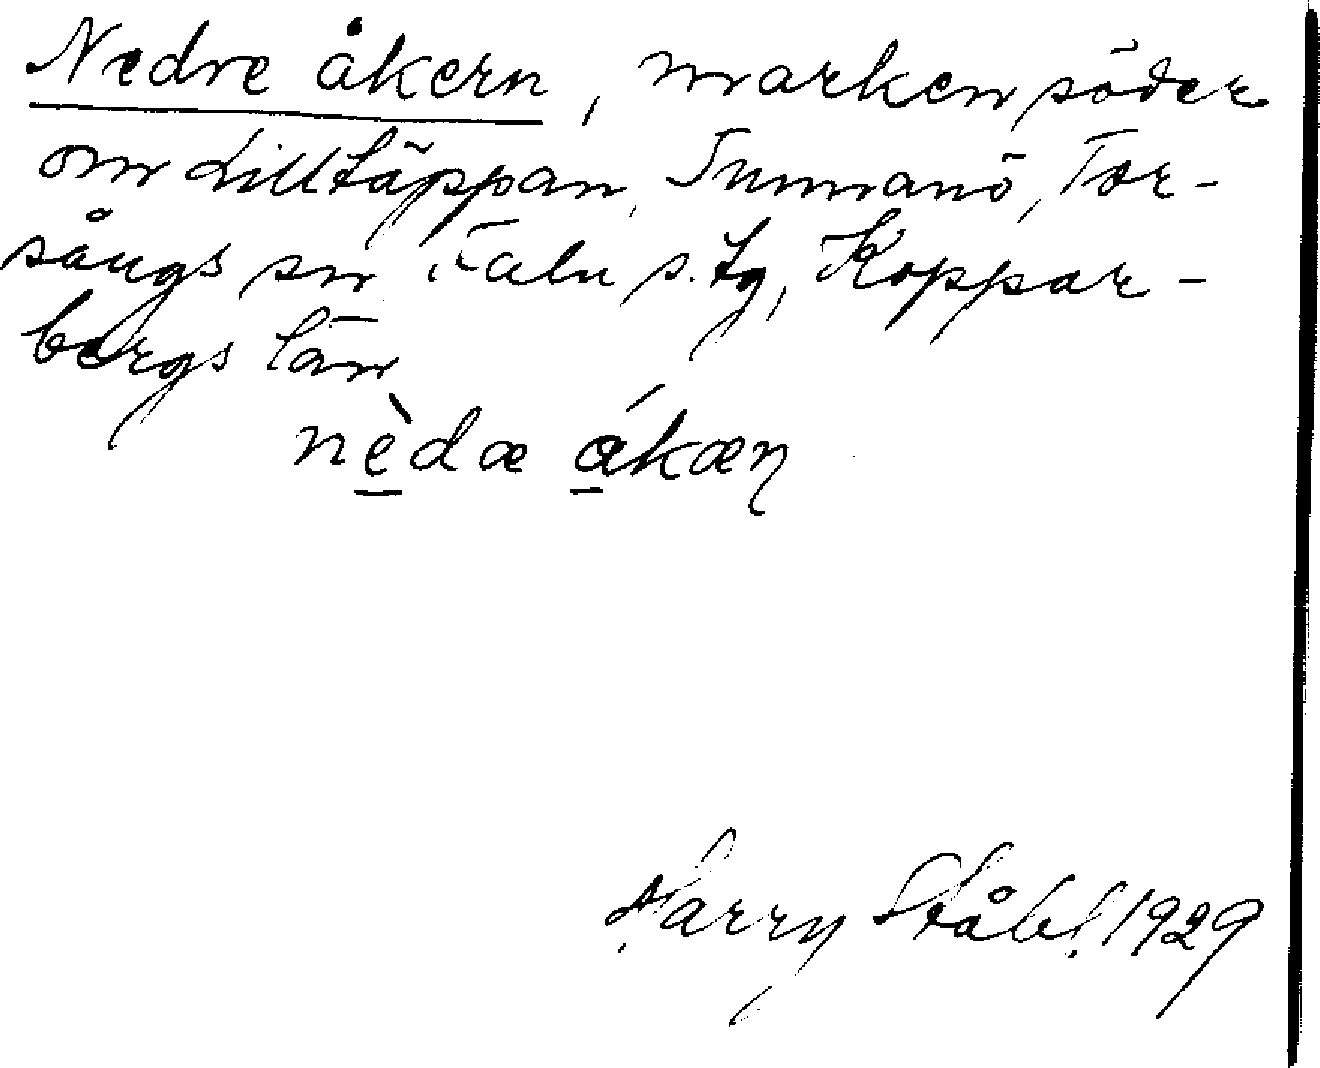 Nedre åkern, marken söder
om Lilltäppan, Sunnanö, Tor-
sångs sn Falu s. tg, Koppar-
bergs län
nèdæ ákæn
Harry Ståhl 1929